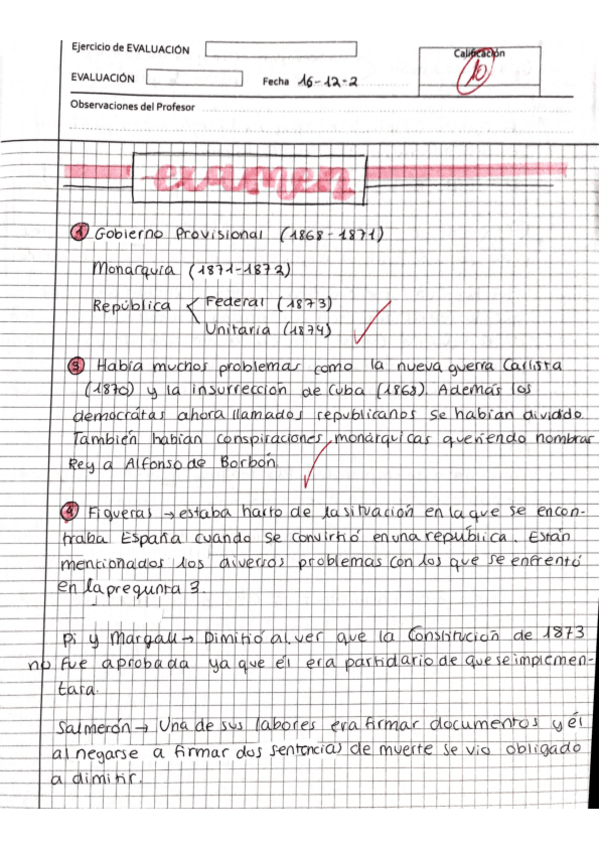 Ejercicio de EVALUACIÓN
Calificación
10
EVALUACIÓN
Fecha 16-12-2
Observaciones del Profesor
examen
1 Gobierno Provisional (1868-1871)
Monarquía (1871-1872)
República < Federal (1873)
Unitaria (1874)
3 Había muchos problemas como la nueva guerra Carlista
(1870) y la insurrección de Cuba (1868). Además los
demócratas ahora llamados republicanos se habían dividido.
También habían conspiraciones monárquicas queriendo nombrar
Rey a Alfonso de Borbón
4 Figueras → estaba harto de la situación en la que se encon-
traba España cuando se convirtió en una república. Están
mencionados los diversos problemas con los que se enfrentó
en la pregunta 3.
Pi y Margall → Dimitió al ver que la Constitución de 1873
no fue aprobada ya que él era partidario de que se implemen-
tara.
Salmerón → Una de sus labores era firmar documentos y él
al negarse a firmar dos sentencias de muerte se vio obligado
a dimitir.